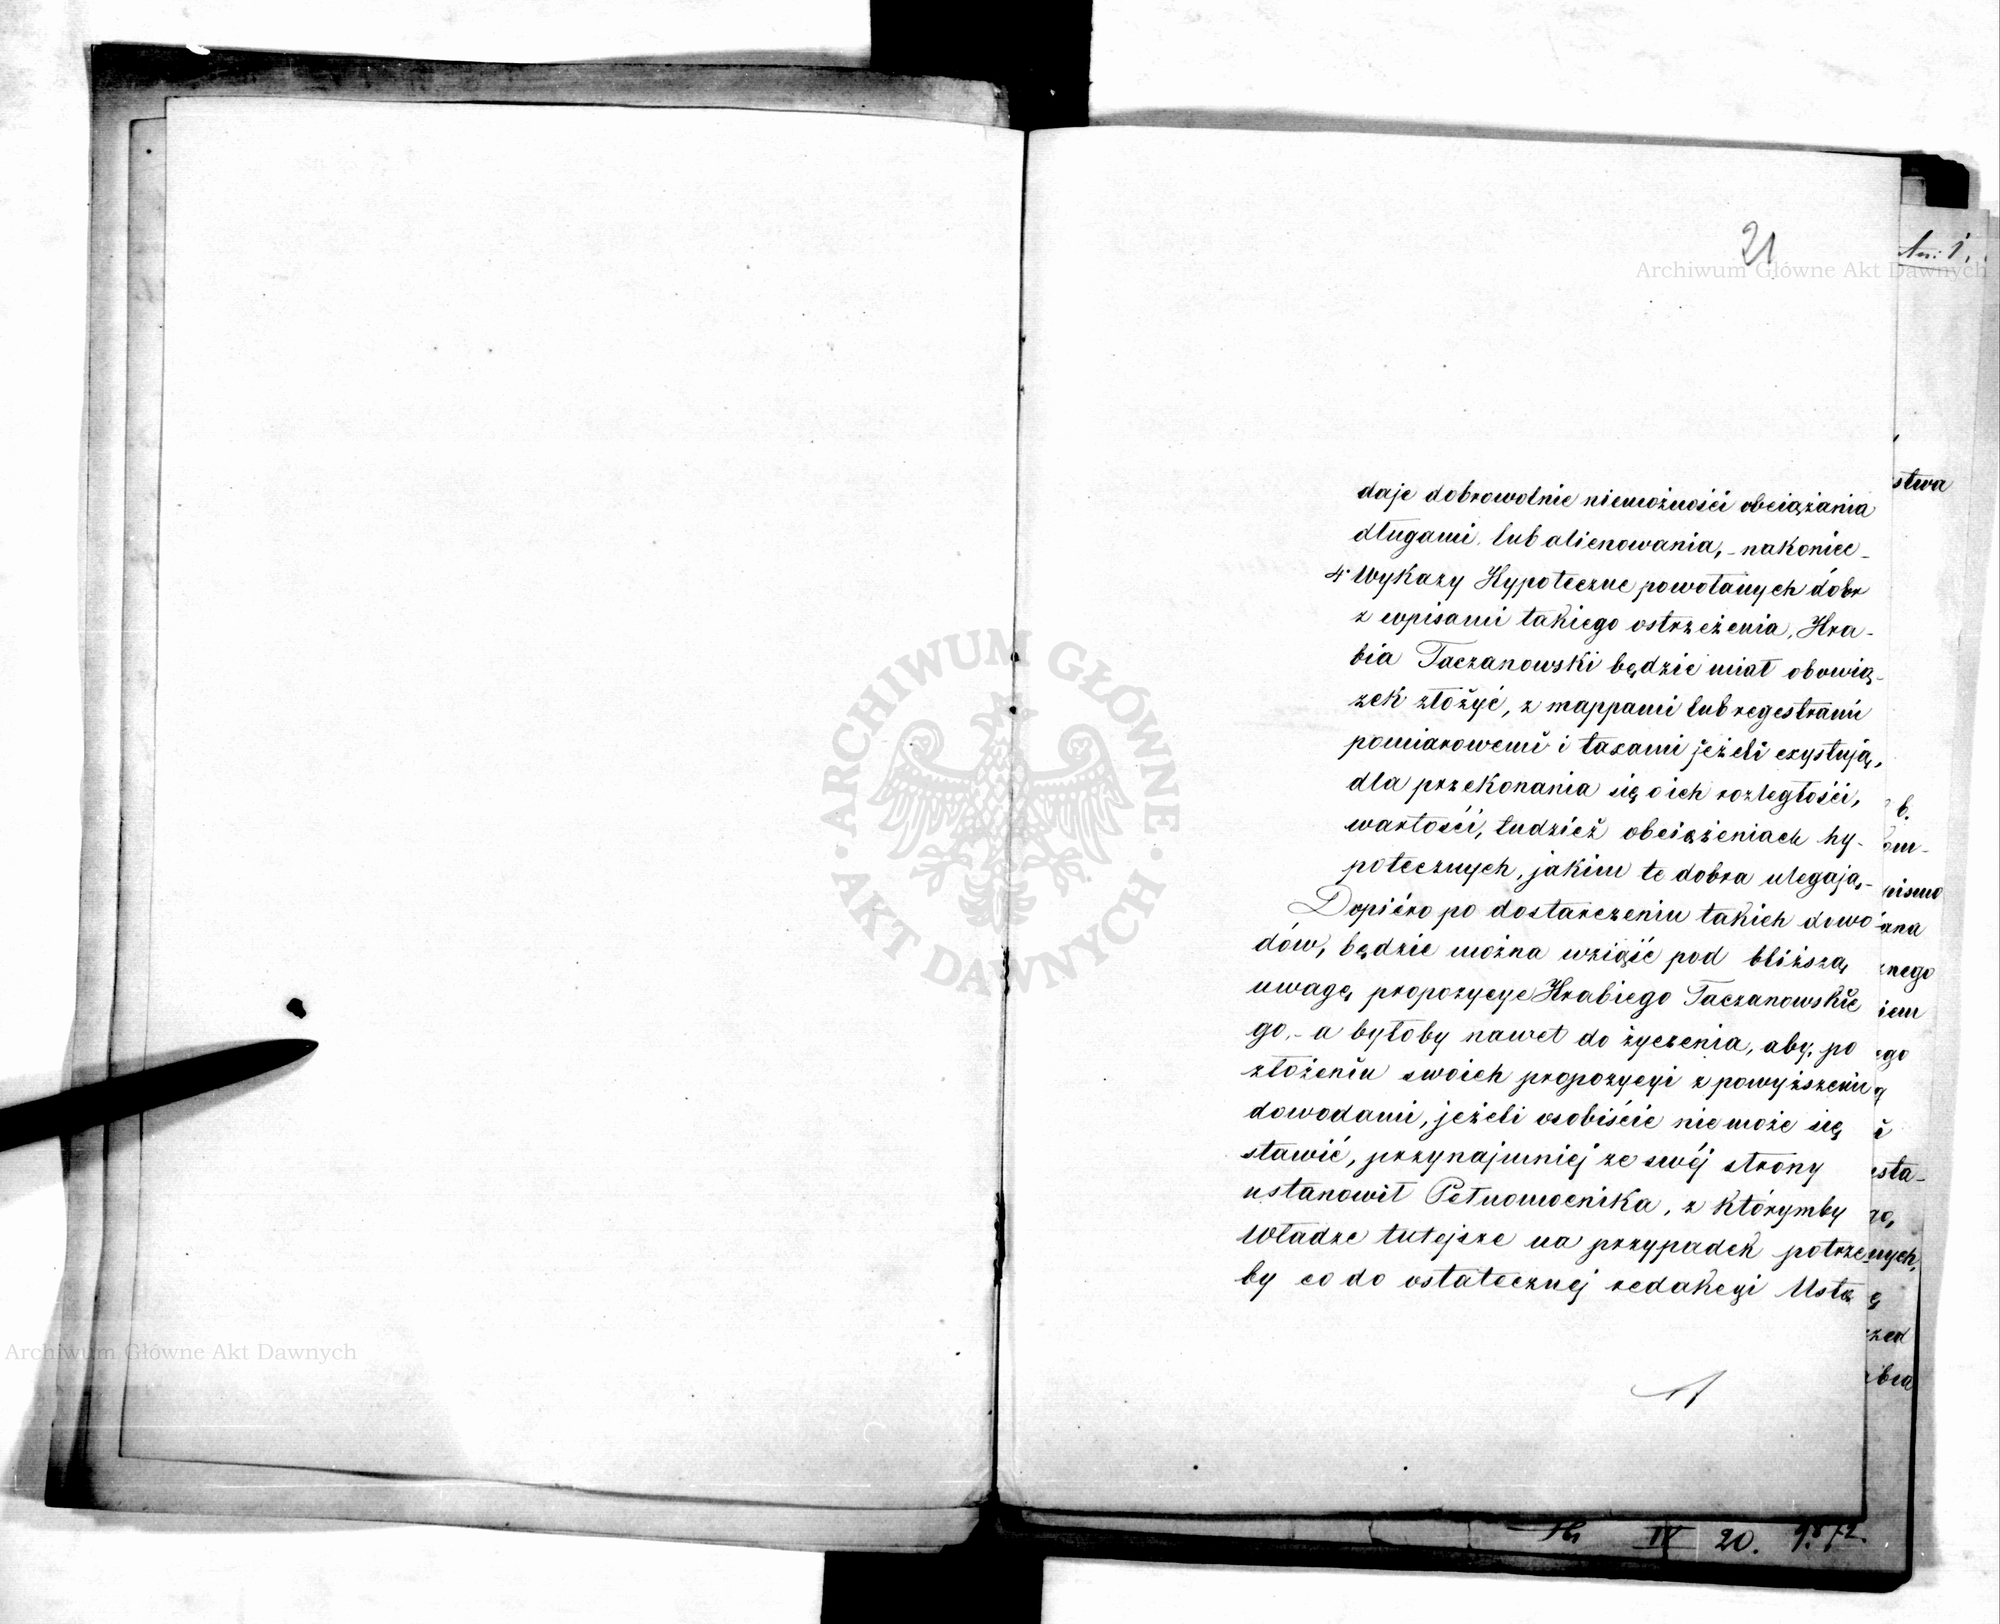 21
Archiwum Główne Akt Dawnych
daje dobrowolnie niemożności obciążania
długami lub alienowania, - nakoniec -
4° Wykazy Hypoteczne powołanych dóbr
z wpisami takiego ostrzeżenia, Hra-
bia Taczanowski będzie miał obowią-
zek złożyć, z mappami lub regestrami
pomiarowemi i taxami jeżeli exystują,
dla przekonania się o ich rozległości,
wartości, tudzież obciążeniach hy-
potecznych, jakim te dobra ulegają, -
Dopiéro po dostarczeniu takich dowo
dów, będzie można wziąść pod bliższą
uwagę, propozycye Hrabiego Taczanowskie
go, - a byłoby nawet do życzenia, aby, po
złożeniu swoich propozycyi z powyższemi
dowodami, jeżeli osobiście nie może się
stawić, przynajmniej ze swéj strony
ustanowił Pełnomocnika, z którymby
Władze tutejsze na przypadek potrze
by co do ostatecznej redakcyi Usta
stwa
b.
om-
pismo
ana
znego
iem
ego
esta-
nych,
ARCHIWUM GŁÓWNE
AKT DAWNYCH
Archiwum Główne Akt Dawnych
IV 20.